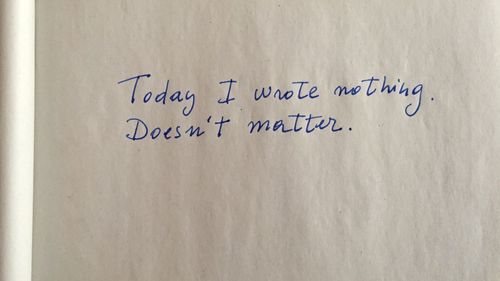 Today I wrote nothing.
Doesn't matter.